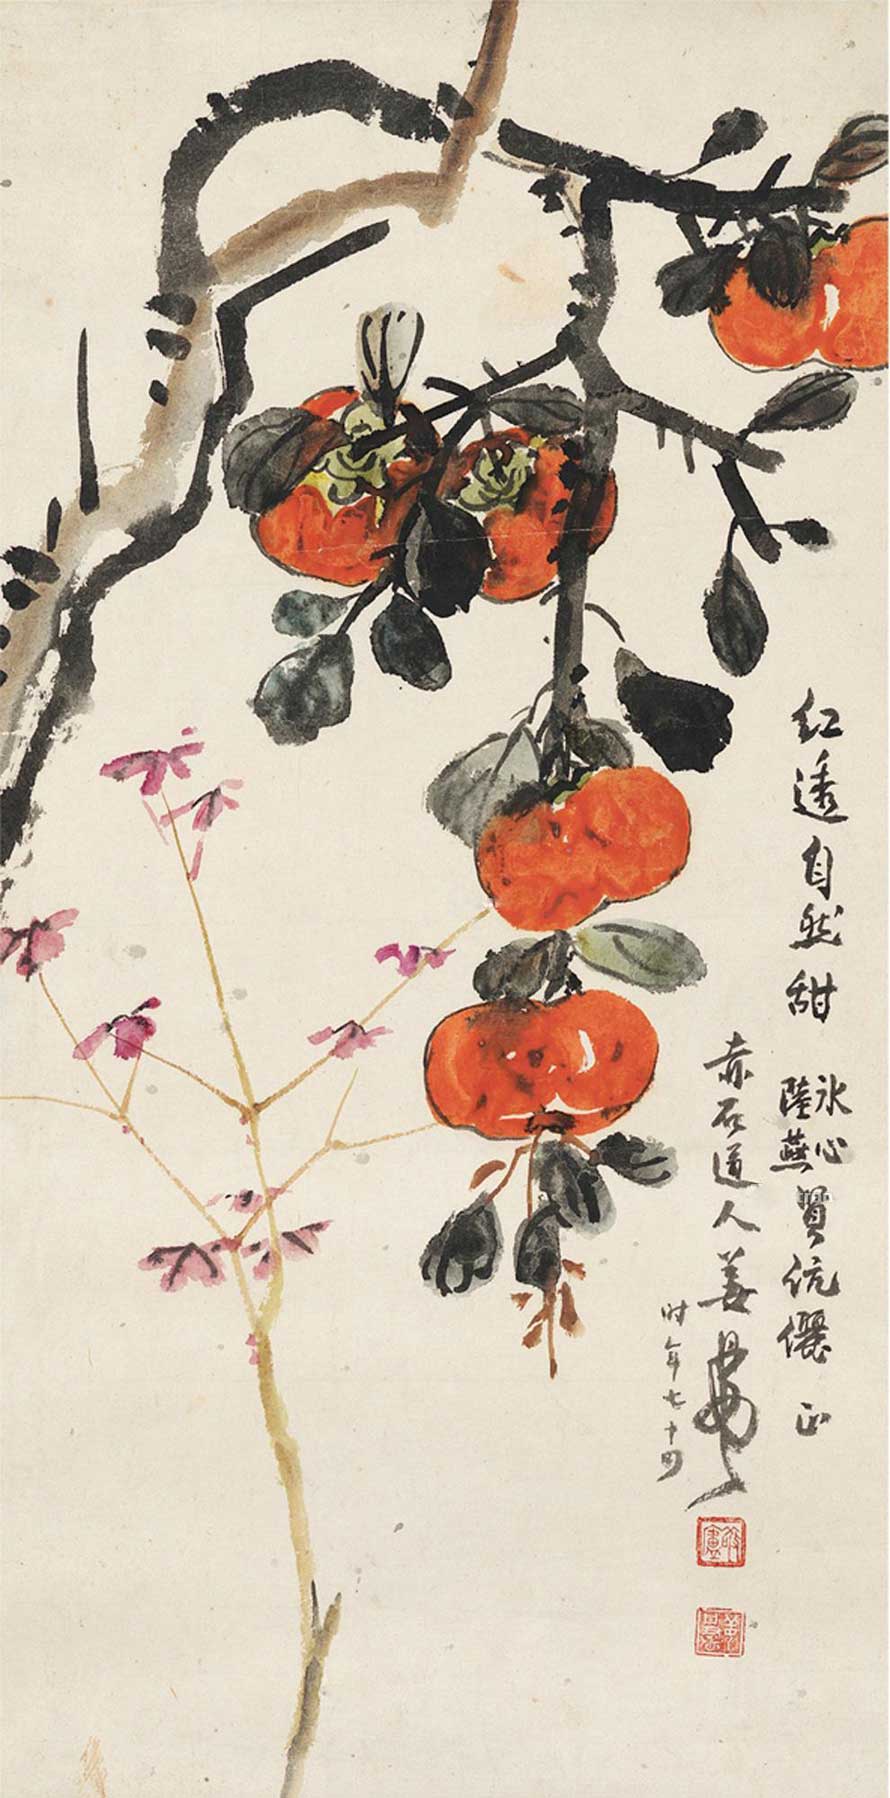 红透自然甜
氷心
陸燕
賢伉儷 正
赤石道人姜丹書
时年七十四